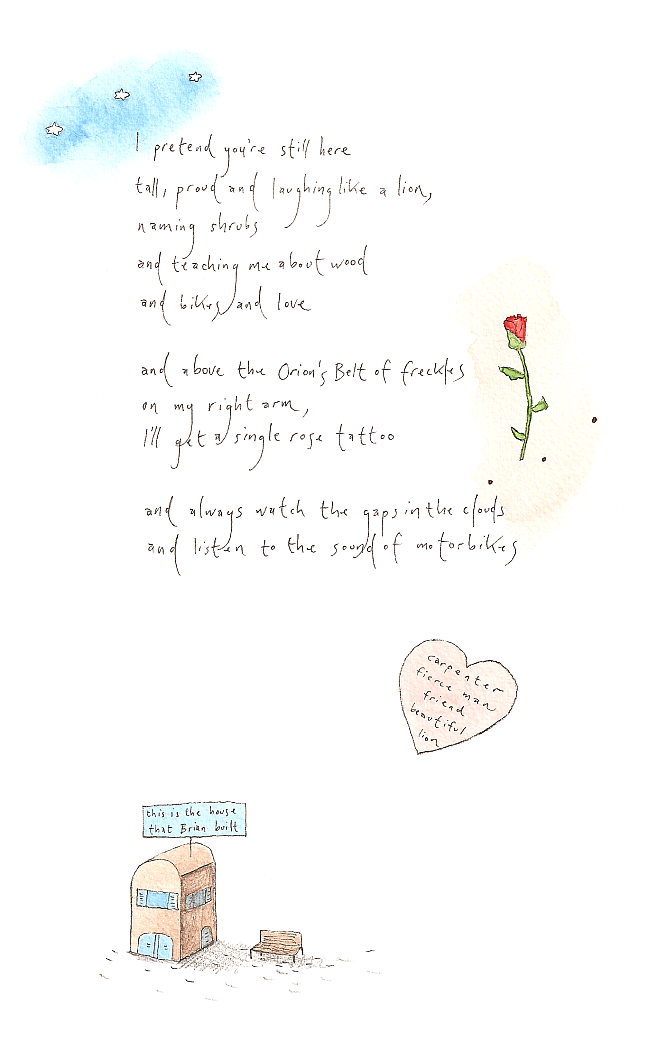 I pretend you're still here
tall, proud and laughing like a lion,
naming shrubs
and teaching me about wood
and bikes and love
and above the Orion's Belt of freckles
on my right arm,
I'll get a single rose tattoo
and always watch the gaps in the clouds
and listen to the sound of motorbikes
carpenter
fierce man
friend
beautiful
lion
this is the house
that Brian built